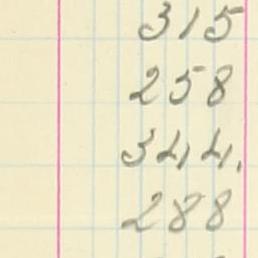 315
258
344.
288